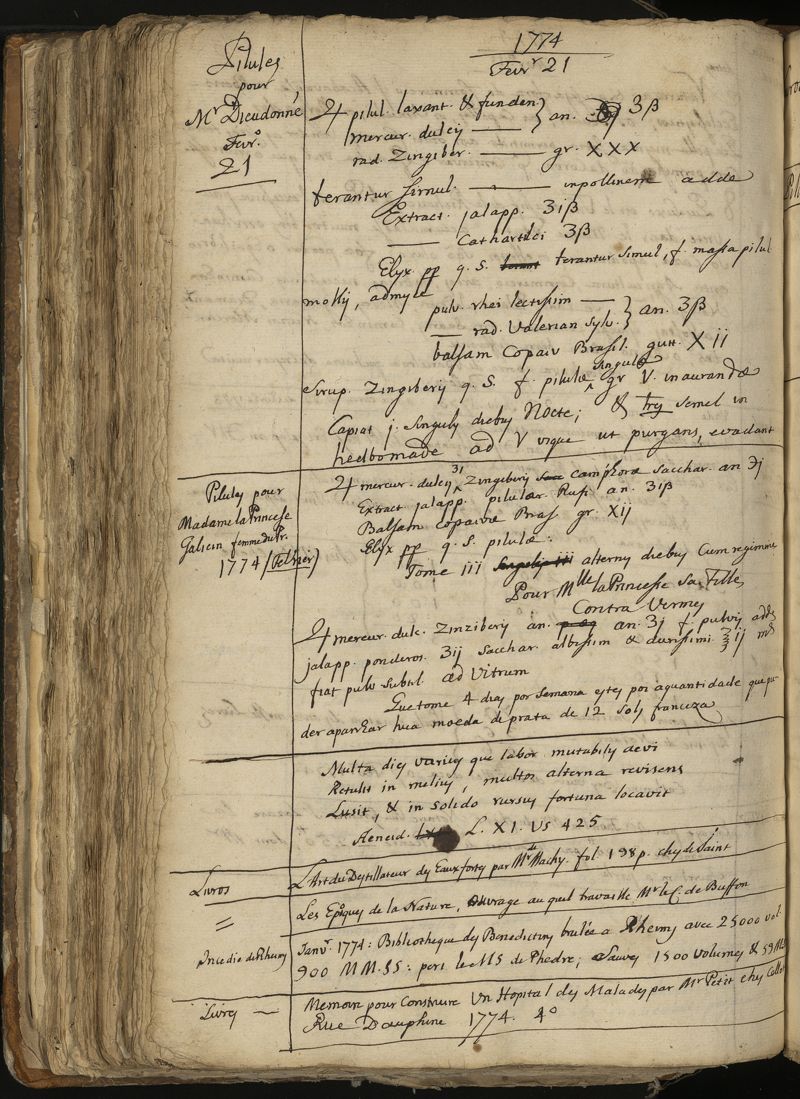 1774
Fevr 21
Pilules
pour
Mr Dieudonné
Fevro.
21
♃ pilul. laxant. & funden } an. ʒβ
mercur. dulcij —
rad. Zingiber. — gr. XXX
terantur simul. — inpollinem adde
Extract. jalapp. ʒiβ
— Cathartici ʒβ
Elyx. pp q. S. terantur simul, f. massa pilul
mollij, admyte
pulv. rhei lectissim — } an. ʒβ
— rad. Valerian Sylv.
balsam Copaiv Brasil. gutt. Xii
Sirup. Zingiberij q. S. f. pilulæ singulæ gr V. inaurandæ
Capiat j. singulij diebuy Nocte; & trij semel in
heebomade ad V vsque ut purgans, evadant
Piluley pour
Madame la Princese
Galicin femme du Pr.
1774 (Peltier)
♃ mercur. dulcij Zingiberij Camphoræ Sacchar. an ℈j
Extract jalapp. pilular. Rufi an. ʒiβ
Balsam Copaivæ Bras gr. XIj
Elyx pp q. S. pilulæ:
Tome III alterny diebuy Cum regimine
Pour Mlle la Princesse Sa Fille,
Contra Vermey
♃ mercur. dulc. Zinziberij an. an. ʒj f. pulvij adde
jalapp. ponderos. ʒij Sacchar. albissim & durissimi ℥ij
fiat pulv Subtil. ad Vitrum
Que tome 4 diay por Semana estey poi aquantidade que pu
der apanhar hua moeda de prata de 12 Solz franceza
Multa diey variuy que labor mutabily ævi
Retulit in meliuy, multos alterna revisens
Lusit, & in Solido rursuy fortuna locavit
Aeneid. L. XI. Vs 425
Livros
L'Art du Destillateur dey Eaux fortey par Mr Machy. fol 198 p. chey de Saint
=
Les Epoquey de la Nature, Ouvrage au quel travaille Mr le C. de Buffon
Incedie de Rheimy
Janvr. 1774: Bibliotheque dey Benedictiny brulée a Rheimy avec 25000 vol.
900 MM.SS: peri le MS de Phedre; Sauvey 1500 volumey & 59 MM
Livrey —
Memoire pour Construire Un Hopital dey Maladey par Mr Petit chey Cellot
Rue Dauphine 1774. 4o